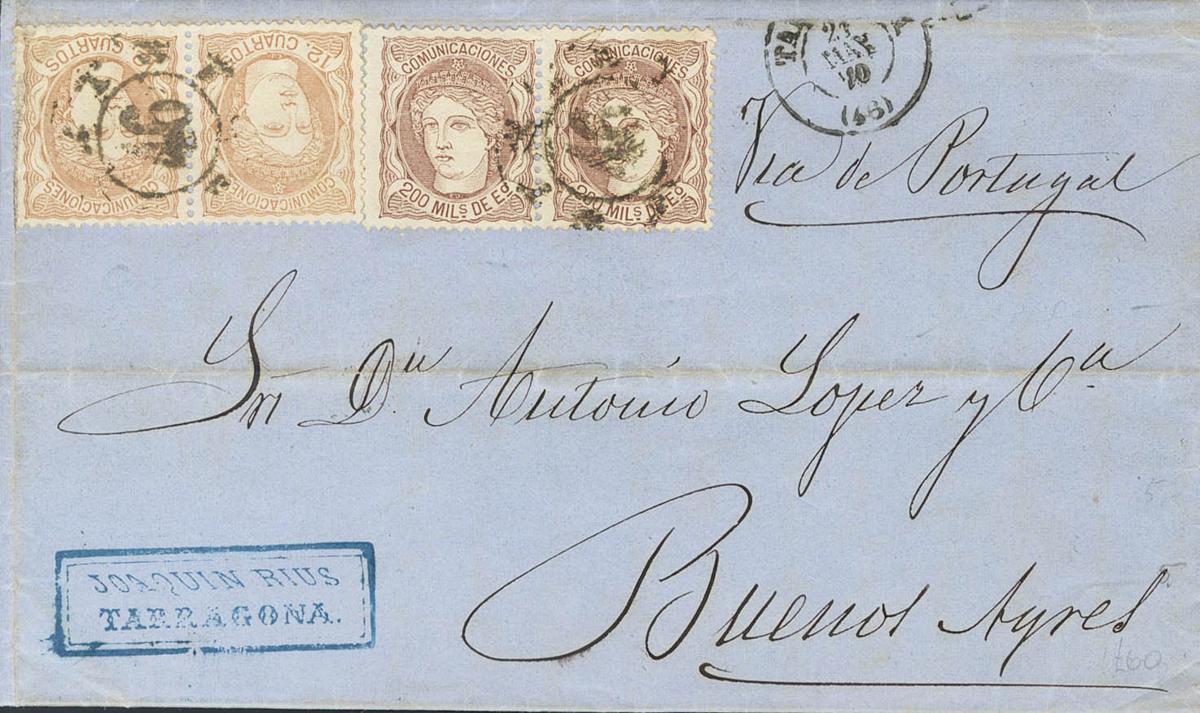 12 CUARTOS
COMUNICACIONES
12 CUARTOS
COMUNICACIONES
COMUNICACIONES
200 MILS DE Eo
COMUNICACIONES
200 MILS DE Eo
TA
MAR
70
(48)
Via de Portugal
Sr Dn Antonio Lopez y Ca
Buenos Ayres
JOAQUIN RIUS
TARRAGONA.